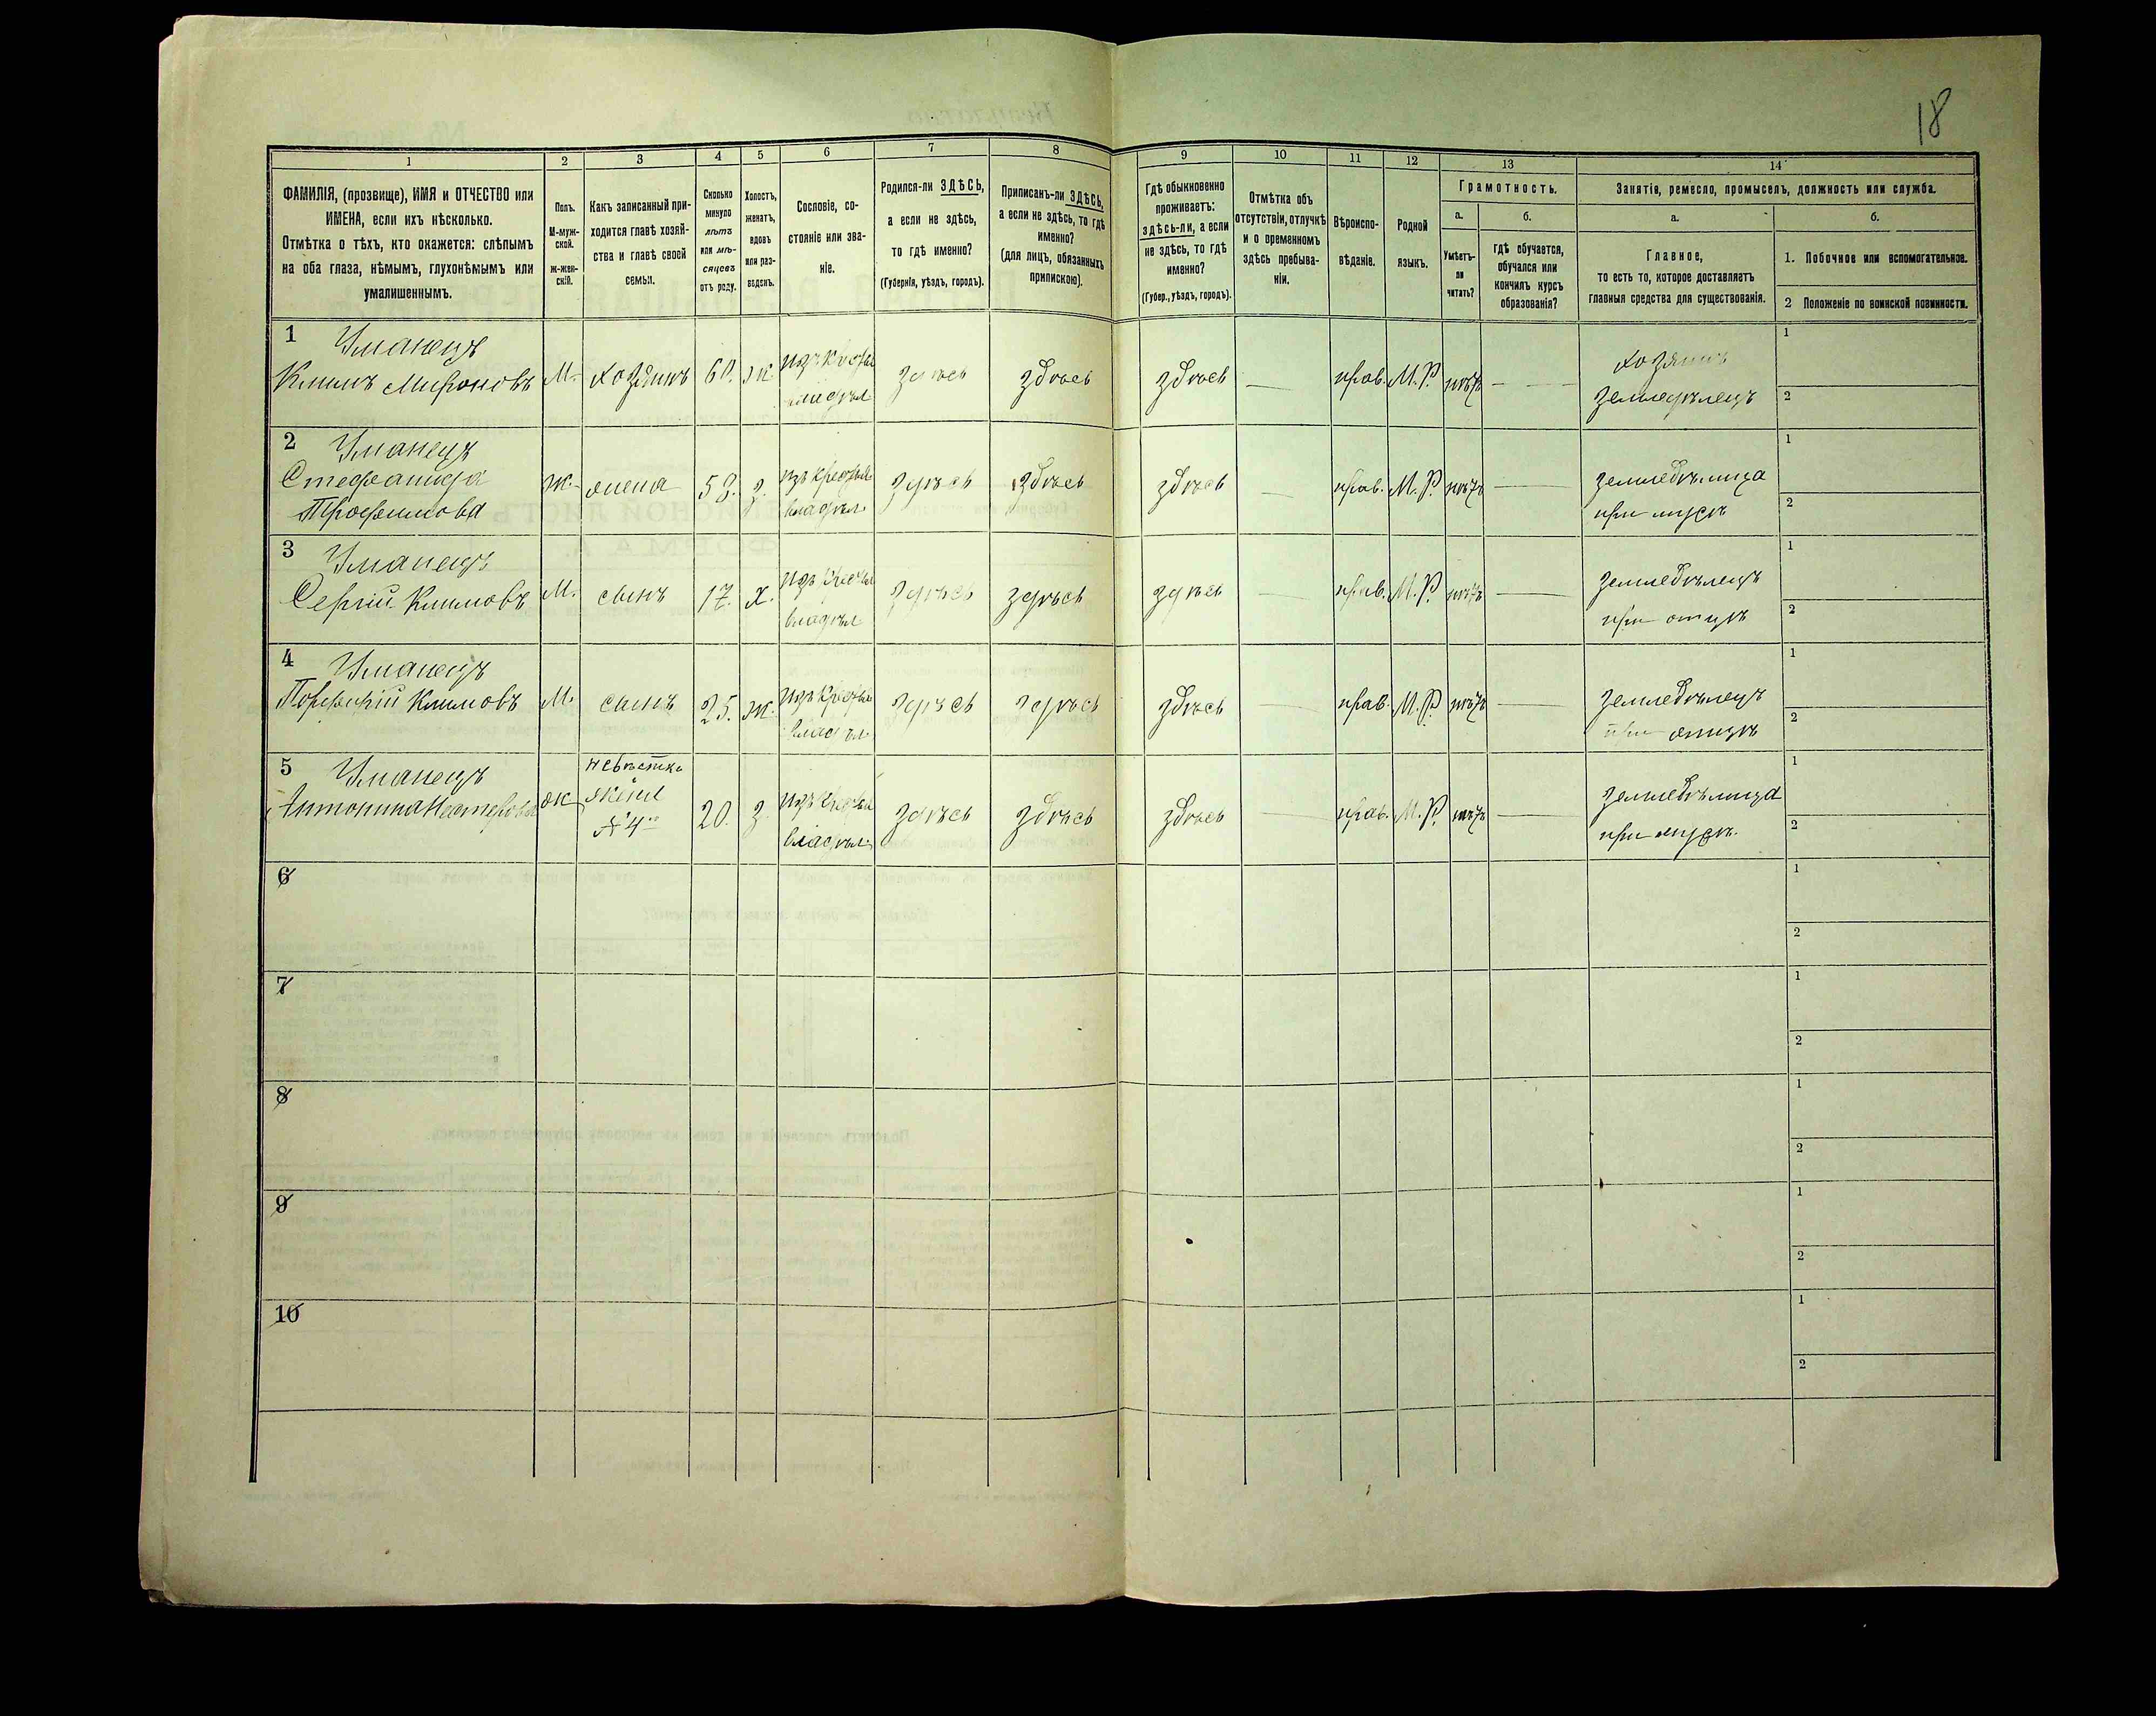 18
1 2 3 4 5 6 7 8 9 10 11 12 13 14
ФАМИЛІЯ, (прозвище), ИМЯ и ОТЧЕСТВО или
ИМЕНА, если ихъ нѣсколько.
Отмѣтка о тѣхъ, кто окажется: слѣпымъ
на оба глаза, нѣмымъ, глухонѣмымъ или
умалишеннымъ.
Полъ.
М-муж-
ской.
ж-жен-
скій.
Какъ записанный при-
ходится главѣ хозяй-
ства и главѣ своей
семьи.
Сколько
минуло
лѣтъ
или мѣ-
сяцевъ
отъ роду.
Холостъ,
женатъ,
вдовъ
или раз-
веденъ.
Сословіе, со-
стояніе или зва-
ніе.
Родился-ли ЗДѢСЬ,
а если не здѣсь,
то гдѣ именно?
(Губернія, уѣздъ, городъ).
Приписанъ-ли ЗДѢСЬ,
а если не здѣсь, то гдѣ
именно?
(для лицъ, обязанныхъ
припискою).
Гдѣ обыкновенно
проживаетъ:
здѣсь-ли, а если
не здѣсь, то гдѣ
именно?
(Губер., уѣздъ, городъ).
Отмѣтка объ
отсутствіи, отлучкѣ
и о временномъ
здѣсь пребыва-
ніи.
Вѣроиспо-
вѣданіе.
Родной
языкъ.
Грамотность.
а. б.
Умѣетъ-
ли
читать?
гдѣ обучается,
обучался или
кончилъ курсъ
образованія?
Занятія, ремесло, промыселъ, должность или служба.
а. б.
Главное,
то есть то, которое доставляетъ
главныя средства для существованія.
1. Побочное или вспомогательное.
2 Положеніе по воинской повинности.
1 Уманецъ
Климъ Мироновъ
М. хозяинъ 60. ж.
изъ крестьян
владѣл
здѣсь здѣсь здѣсь — прав. М.Р. нѣтъ —
хозяинъ
земледѣлецъ
1
2
2 Уманецъ
Стефанида
Трофимова
ж. жена 58. з.
изъ крестьян
владѣл
здѣсь здѣсь здѣсь — прав. М.Р. нѣтъ —
земледѣлица
при мужѣ
1
2
3 Уманецъ
Сергій Климовъ
М. сынъ 17. х.
изъ крестьян
владѣл
здѣсь здѣсь здѣсь — прав. М.Р. нѣтъ —
земледѣлецъ
при отцѣ
1
2
4 Уманецъ
Порфирій Климовъ
М. сынъ 25. ж.
изъ крестьян
владѣл
здѣсь здѣсь здѣсь — прав. М.Р. нѣтъ —
земледѣлецъ
при отцѣ
1
2
5 Уманецъ
Антонина Нестерова
ж
невѣстка
и
жена
№ 4го
20. з.
изъ крестьян
владѣл
здѣсь здѣсь здѣсь — прав. М.Р. нѣтъ —
земледѣлица
при мужѣ.
1
2
6
1
2
7
1
2
8
1
2
9
1
2
10
1
2